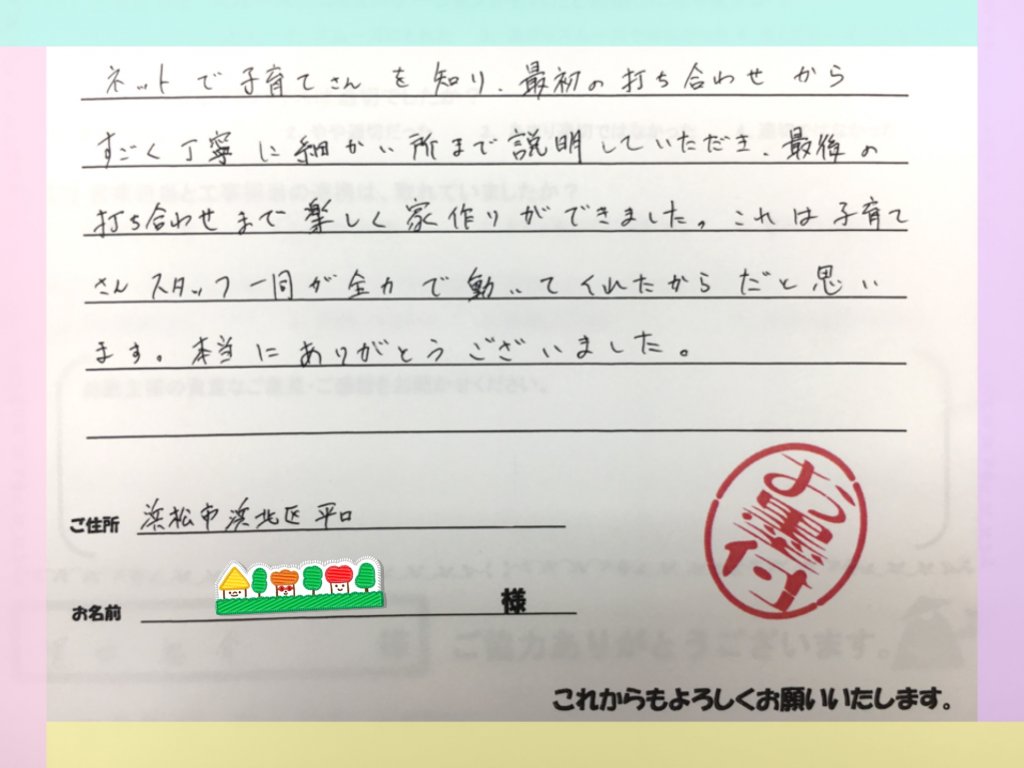 ネットで子育てさんを知り、最初の打ち合わせから
すごく丁寧に細かい所まで説明していただき、最後の
打ち合わせまで楽しく家作りができました。これは子育て
さんスタッフ一同が全力で動いてくれたからだと思い
ます。本当にありがとうございました。
お墨付
ご住所 浜松市浜北区平口
お名前 様
ご協力ありがとうございます。
これからもよろしくお願いいたします。